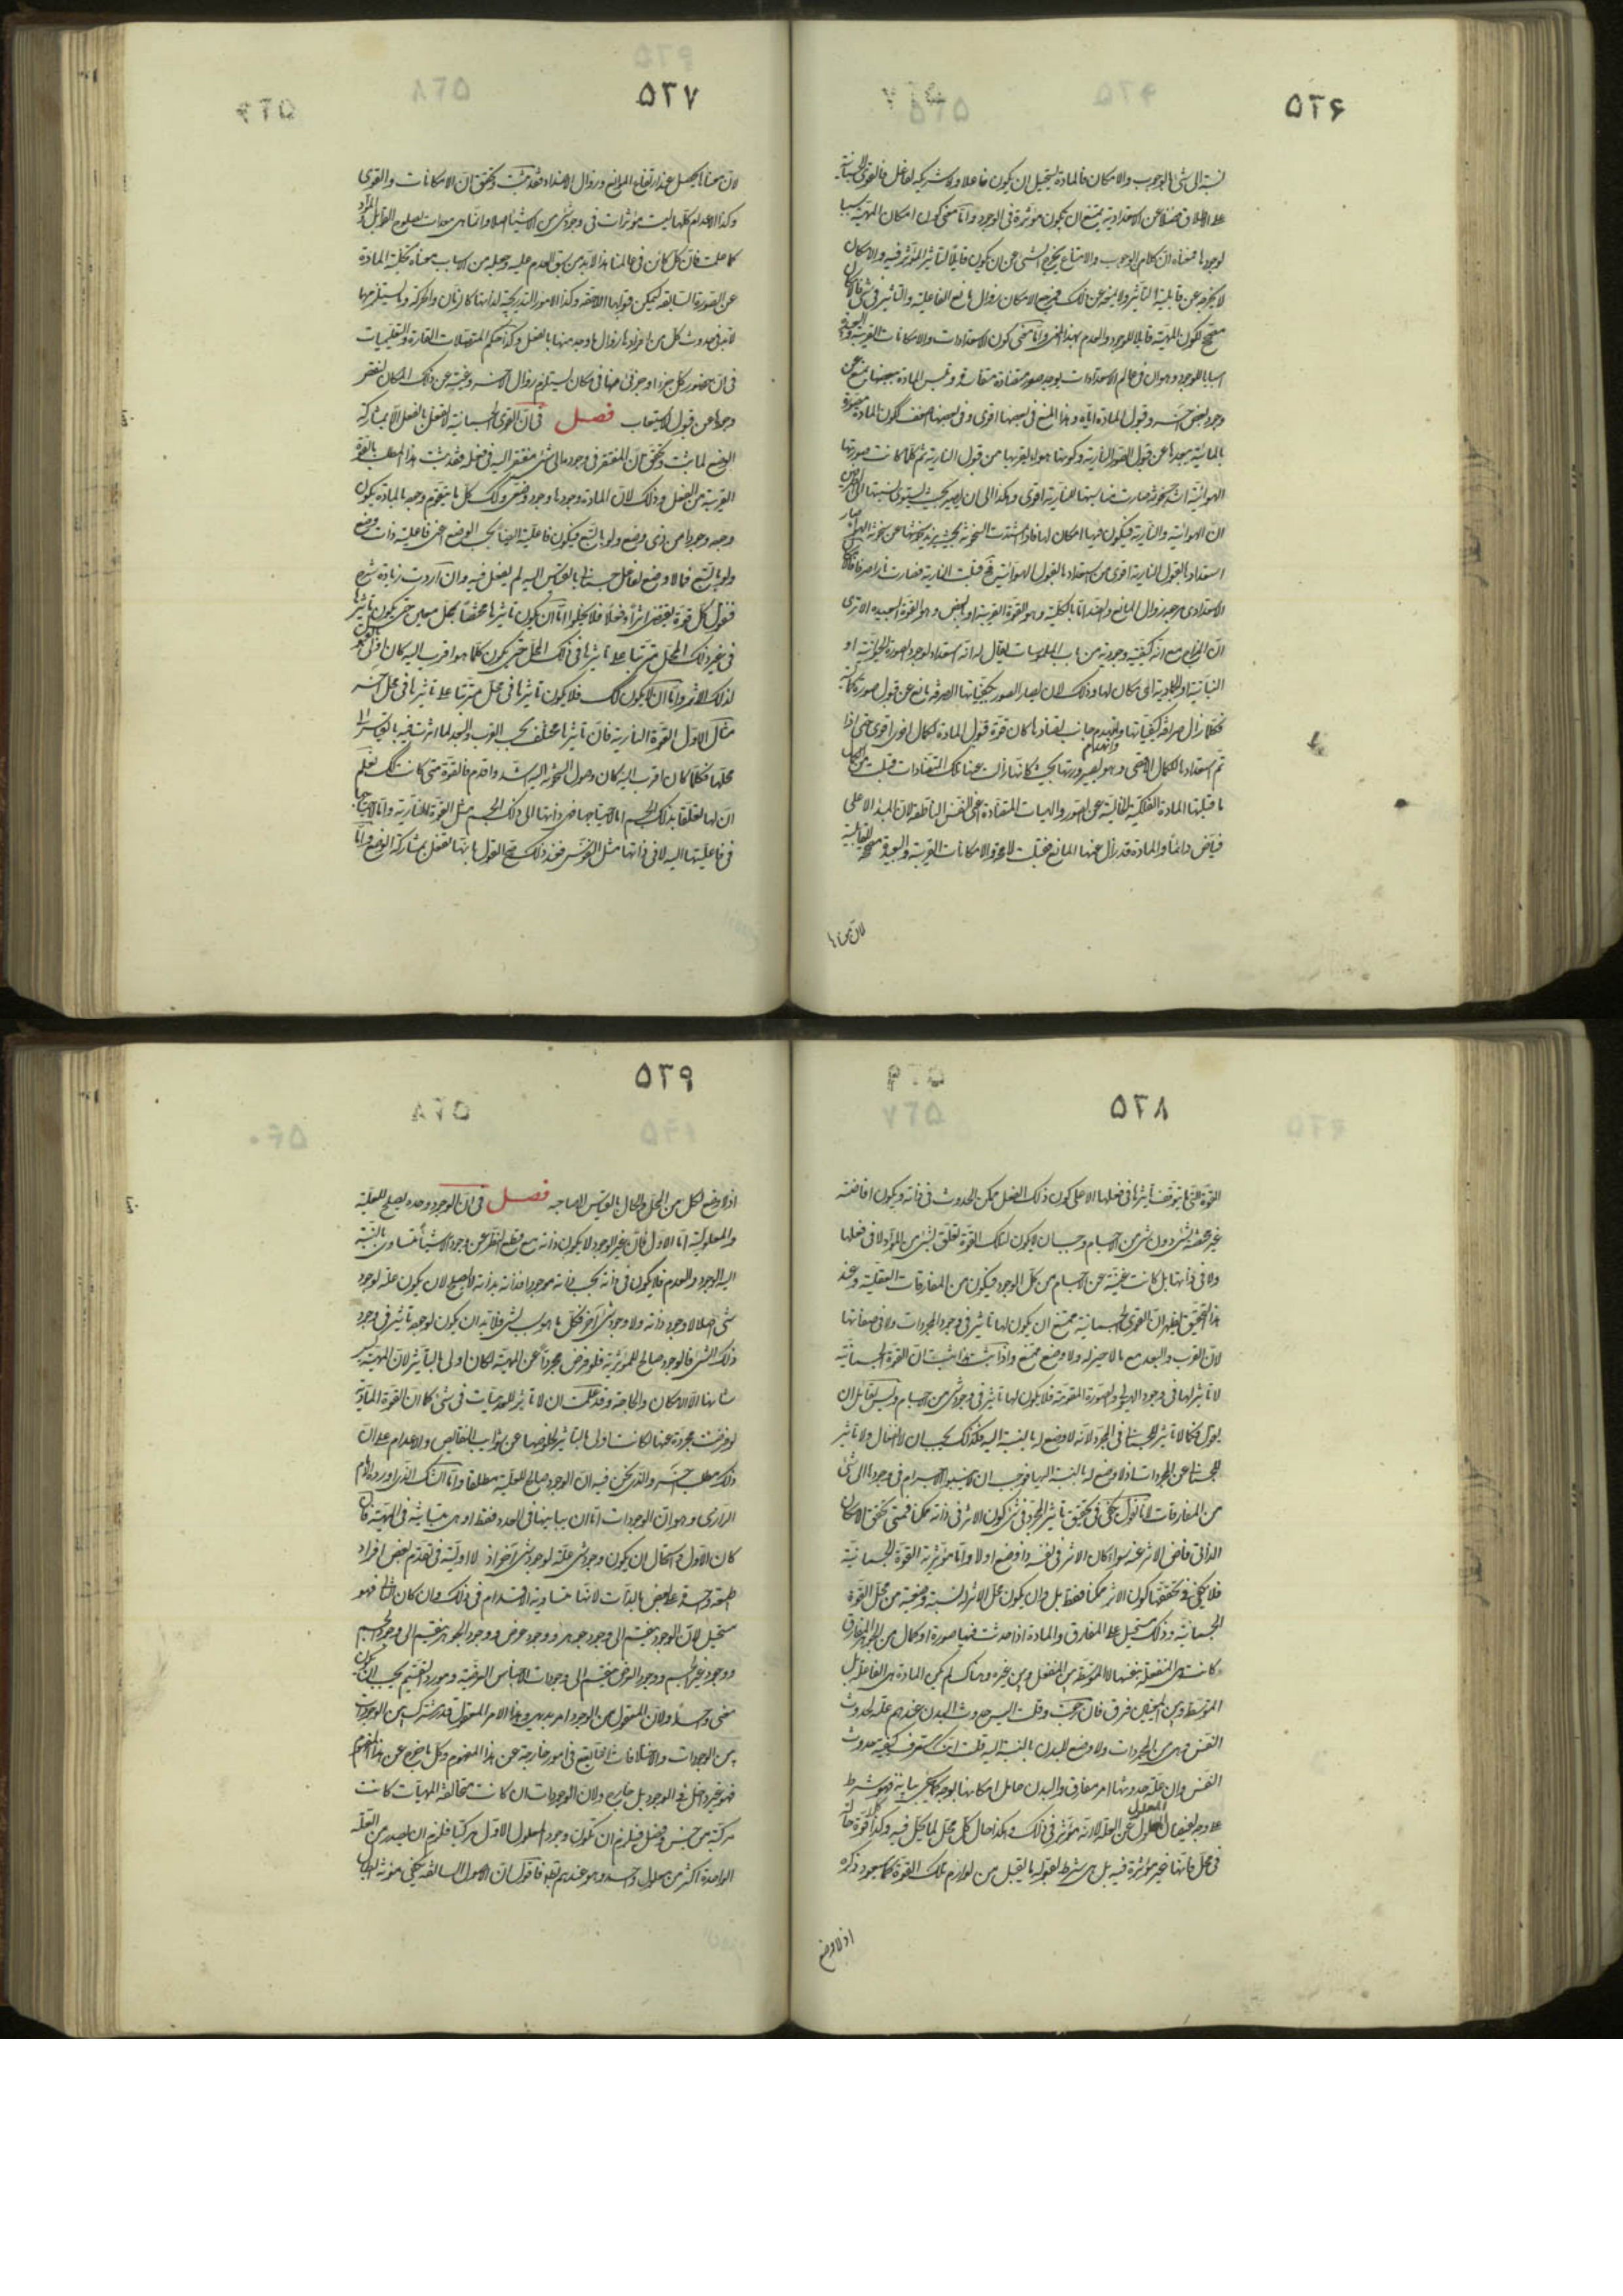 ۵۲۶
نسبة الشئ بالوجوب والامكان فالمادة يستحيل ان يكون فاعلا ولا شريكه لفاعل فالقوى الجسمانية
على الاطلاق فضلا عن الاستعدادية يمتنع ان يكون مؤثرة فى الوجود واما معنى كون امكان المهية سببا
لوجودها فمعناه ان كلا من الوجوب والامتناع يخرج الشئ عن ان يكون قابلا لتاثير المؤثر فيه والامكان
لا يخرجه عن قابلية التاثير ولا يمنعه عن ذلك فيرجع الامكان زوال مانع الفاعلية والتاثير فى شئ
مصحح لكون المهية قابلا للوجود والعدم بهذا المعنى واما معنى كون الاستعدادات والامكانات القريبة والبعيدة
اسبابا للوجود وهو ان فى عالم الاستعدادات يوجد صور متضادة متفاسدة وتلبس المادة ببعضها يمنع عن
وجود بعض آخر وقبول المادة اياه وهذا المنع فى بعضها اقوى وفى بعضها اضعف ككون المادة مصورة
بالمائية يبعدها عن قبول الصورة النارية وكونها هواء يقربها من قبول النارية ثم كلما كانت صورتها
الهوائية اشد سخونة صارت مناسبتها للنارية اقوى وهكذا الى ان يصير بحيث يستوى نسبتها الى
الهوائية والنارية فيكون فيها امكان لها فاذا اشتدت السخونة بحيث يزيد سخونتها عن سخونة الهواء صار
استعدادها لقبول النارية اقوى من استعدادها لقبول الهوائية فح قبلت النارية فصارت نارا صرفا
الاستعدادى مرجعه زوال المانع والضد اما بالكلية وهو القوة القريبة او البعض وهو القوة البعيدة الا ترى
ان المزاج مع انه كيفية وجودية من باب الملموسات يقال له انه استعداد لوجود الصورة الحيوانية او
النباتية او الجمادية اى امكان لها وذلك لان لصور العناصر بكيفياتها الصرفة مانع عن قبول صورة كمالية
فكلما زال صرافة كيفياتها وانهدم جانب تضادها كان قوة قبول المادة لكمال اخر اقوى حتى اذا
تم استعدادها للكمال الاقصى وهو بصيرورتها بحيث كانها زالت عنها تلك المتضادات قبلت
ما قبلتها المادة الفلكية الخالية عن الصور والهيات المتضادة اعنى النفس الناطقة لان المبدا الاعلى
فياض دائما والمادة قد زال عنها المانع فقبلت لا محة والامكانات القريبة والبعيدة مصححة للقابلية
لان معناها
۵۲۷
لان معناها يحصل عند ارتفاع الموانع وزوال الاضداد فقد ثبت وتحقق ان الامكانات والقوى
وكذا الاعدام كلها ليست مؤثرات فى وجود شئ من الاشياء اصلا وانما هى معدات لصلوح القوابل والمواد
كما علمت فان كل كائن فى عالمنا هذا لابد من سبق العدم عليه وجعله من الاسباب معناه تخلية المادة
عن الصورة السابقة ليمكن قبولها اللاحقة وكذا الامور التدريجية لذاتها كالزمان والحركة وما يستلزمها
لابد فى حدوث كل من افرادها زوال ما وجد منها بالفعل وكذا حكم المتصلات القارة والتعليميات
فى ان حضور كل جزء او جزئى منها فى مكان يستلزم زوال آخر وغيبته عن ذلك المكان لنقص
وجودها عن قبول الاستيعاب فصل فى ان القوى الجسمانية لا تفعل ما تفعل الا بمشاركة
الوضع لما ثبت وتحقق ان المفتقر فى وجوده الى شئ مفتقر اليه فى فعله فقد ثبت هذا المطلب بالقوة
القريبة من الفعل وذلك لان المادة وجودها وجود وضعى وكذلك كل ما يتقوم وجوده بالمادة يكون
وجهه وجودا من ذى وضع ولو بالتبع فيكون فاعلية ايضا بحسب الوضع اعنى فاعلية ذات وضع
ولو بالتبع فما لا وضع لفاعل جسمانى بالقياس اليه لم يفعل فيه وان اردت زيادة شرح
فنقول كل قوة يقتضى اثرا وفعلا فلا يخلو اما ان يكون تاثيرها مختصا بمحل معين حتى يكون تاثيرها
فى غير ذلك المحل مترتبا على تاثيرها فى ذلك المحل حتى يكون كلما هو اقرب اليه كان اولى بقبول
لذلك الاثر واما ان لا يكون كك فلا يكون تاثيرها فى محل مترتبا على تاثيرها فى محل آخر
مثال الاول القوة النارية فان تاثيرها مختلف بحسب القرب والبعد لما اثرت فيه بالقياس الى
محلها فكلما كان اقرب اليه كان وصول السخونة اليه اشد واقدم فالقوة متى كانت كك نعلم
ان لها تعلقا بذلك الجسم اما لاحتياجها فى ذاتها الى ذلك الجسم مثل القوة النارية واما لاحتياجها
فى فاعليتها اليه لا فى ذاتها مثل النفوس فعند ذلك صح القول بانها تفعل بمشاركة الوضع واما
۵۲۸
القوة التى لا يتوقف تاثيرها فى فعلها الا على كون ذلك الفعل ممكن الحدوث فى ذاته ويكون افاضته
غير مختصة بشئ دون شئ من الاجسام وجب ان لا يكون لتلك القوة تعلق بشئ من المواد لا فى فعلها
ولا فى ذاتها بل كانت غنية عن الاجسام من كل الوجوه فيكون من المفارقات العقلية وعند
هذا التحقيق يظهر ان القوى الجسمانية ممتنع ان يكون لها تاثير فى وجود المجردات ولا فى صفاتها
لان القرب والبعد مع ما لا حيز له ولا وضع ممتنع واذا ثبت هذا ثبت ان القوة الجسمانية
لا تاثير لها فى وجود الهيولى والصورة المقومة فلا يكون لها تاثير فى وجود شئ من الاجسام وليس لقائل ان
يقول فكما لا تاثير للجسمانى فى المجرد لانه لا وضع له بالنسبة اليه فكذلك يجب ان لا انفعال ولا تاثير
للجسمانى عن المجردات اذ لا وضع له بالنسبة اليها فوجب ان لا يستند الاجسام فى وجودها الى شئ
من المفارقات لانا نقول يكفى فى تحقيق تاثير المجرد فى شئ كون الاثر فى ذاته ممكنا فمتى تحقق الامكان
الذاتى فاض الاثر عنه سواء كان الاثر فى نفسه ذا وضع او لا واما مؤثرية القوة الجسمانية
فلا يكفى فى تحققها كون الاثر ممكنا فقط بل وان يكون محل الاثر له نسبة وضعية من محل القوة
الجسمانية وذلك مستحيل على المفارق والمادة اذا حدثت فيها صورة او كمال من الجوهر المفارق
كانت هى المنفعلة بنفسها لا المتوسطة بين المنفعل وبين غيره وهناك لم يكن المادة هى الفاعلة بل
المتوسط وبين المعنيين فرق فان رجعت وقلت اليس حدوث البدن عندهم علة لحدوث
النفس وهى من المجردات ولا وضع للبدن بالنسبة اليه قلت انك ستعرف كيفية حدوث
النفس وان علة حدوثها امر مفارق والبدن حامل امكانها بوجه كما سيجئ بيانه فهو شرط
على وجه لفيضان المعلول عن العلة لا انه مؤثر فى ذلك وهكذا حال كل محل لما يحل فيه وكذا كل قوة حالة
فى محل فانها غير مؤثرة فيه بل هى شرط لقبوله ما يقبل من لوازم تلك القوة كما سيعود ذكره
اذ لا وضع
۵۲۹
اذ لا وضع لكل من المحل والحال بالقياس الى صاحبه فصل فى ان الوجود وحده يصلح للعلية
والمعلولية اما الاول فلان غير الوجود لا يكون ذاته مع قطع النظر عن وجود الاشياء متساوى بالنسبة
اليه الوجود والعدم فلا يكون فى ذاته بحسب ذاته موجودا فذاته بذاته لا يصلح لان يكون علة لوجود
شئ اصلا لا وجود ذاته ولا وجود شئ آخر فكل ما هو سبب لشئ فلابد ان يكون لوجوده تاثير فى وجود
ذلك الشئ فالوجود صالح للمؤثرية فلو فرض مجردا عن المهية لكان اولى بالتاثير لان المهية ليس
شانها الا الامكان والحاجة وقد علمت ان لا تاثير للعدميات فى شئ كما ان القوة المادية
لو فرضت مجردة عنها لكانت اولى بالتاثير لخلوصها عن شوائب النقائص والاعدام على ان
ذلك مطلب آخر والذى نحن فيه ان الوجود صالح للعلية مطلقا واما الشك الذى اورده الامام
الرازى وهو ان الوجودات اما ان يباينها فى العدد فقط او هى متباينة فى المهية فان
كان الاول فاستحال ان يكون وجود شئ علة لوجود شئ آخر اذ لا اولية فى تقدم بعض افراد
طبيعة واحدة على بعض بالذات لانها متساوية الاقدام فى ذلك وان كان الثانى فهو
مستحيل لان الوجود ينقسم الى وجود جوهر ووجود عرض ووجود الجوهر ينقسم الى وجود الجسم
ووجود غير الجسم ووجود العرض ينقسم الى وجودات الاجناس العرضية ومورد التقسيم يجب ان يكون
معنى واحدا ولان المعقول من الوجود امر بديهى وهذا الامر المعقول قدر مشترك بين الوجودات
بين الوجودات والاختلافات انما تقع فى امور خارجة عن هذا المفهوم وكل ما خرج عن هذا المفهوم
فهو غير داخل فى الوجود بل خارج ولان الوجودات ان كانت مخالفة المهيات كانت
مركبة من جنس وفصل فيلزم ان تكون وجود المعلول الاول مركبا فلزم ان يصدر من العلة
الواحدة اكثر من معلول واحد وهو عندهم بط فاقول ان الاصول السالفة تكفى مؤنة